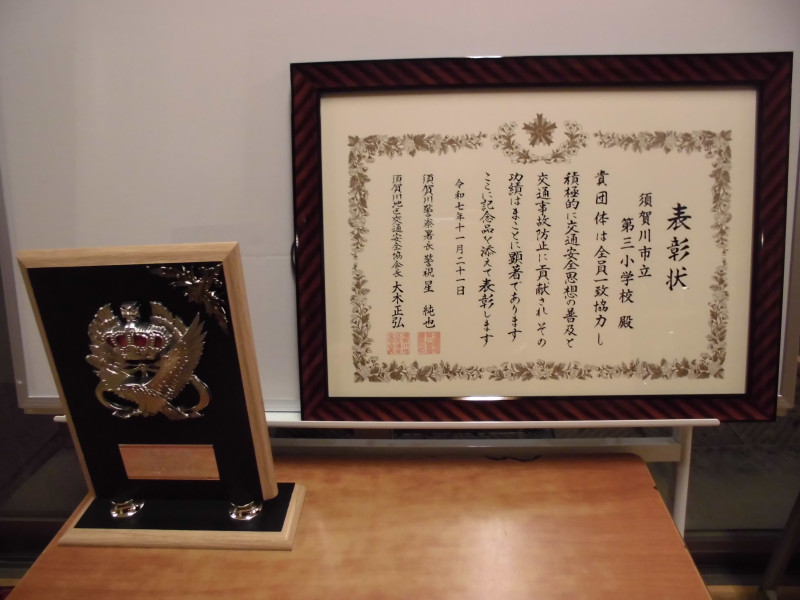 表彰状
須賀川市立
第三小学校 殿
貴団体は全員一致協力し
積極的に交通安全思想の普及と
交通事故防止に貢献され その
功績はまことに顕著であります
ここに記念品を添えて表彰します
令和七年十一月二十一日
須賀川警察署長 警視 星 純也
須賀川地区交通安全協会長 大木正弘